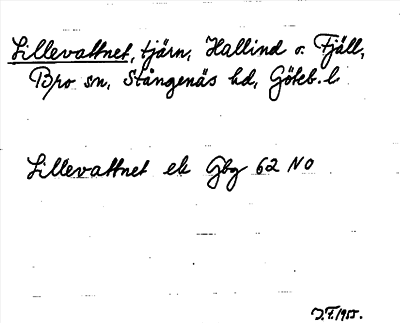 Lillevattnet, tjärn, Hallind o. Fjäll,
Bro sn, Stångenäs hd, Göteb. l.
Lillevattnet ek Gbg 62 NO
J.F. 1955.